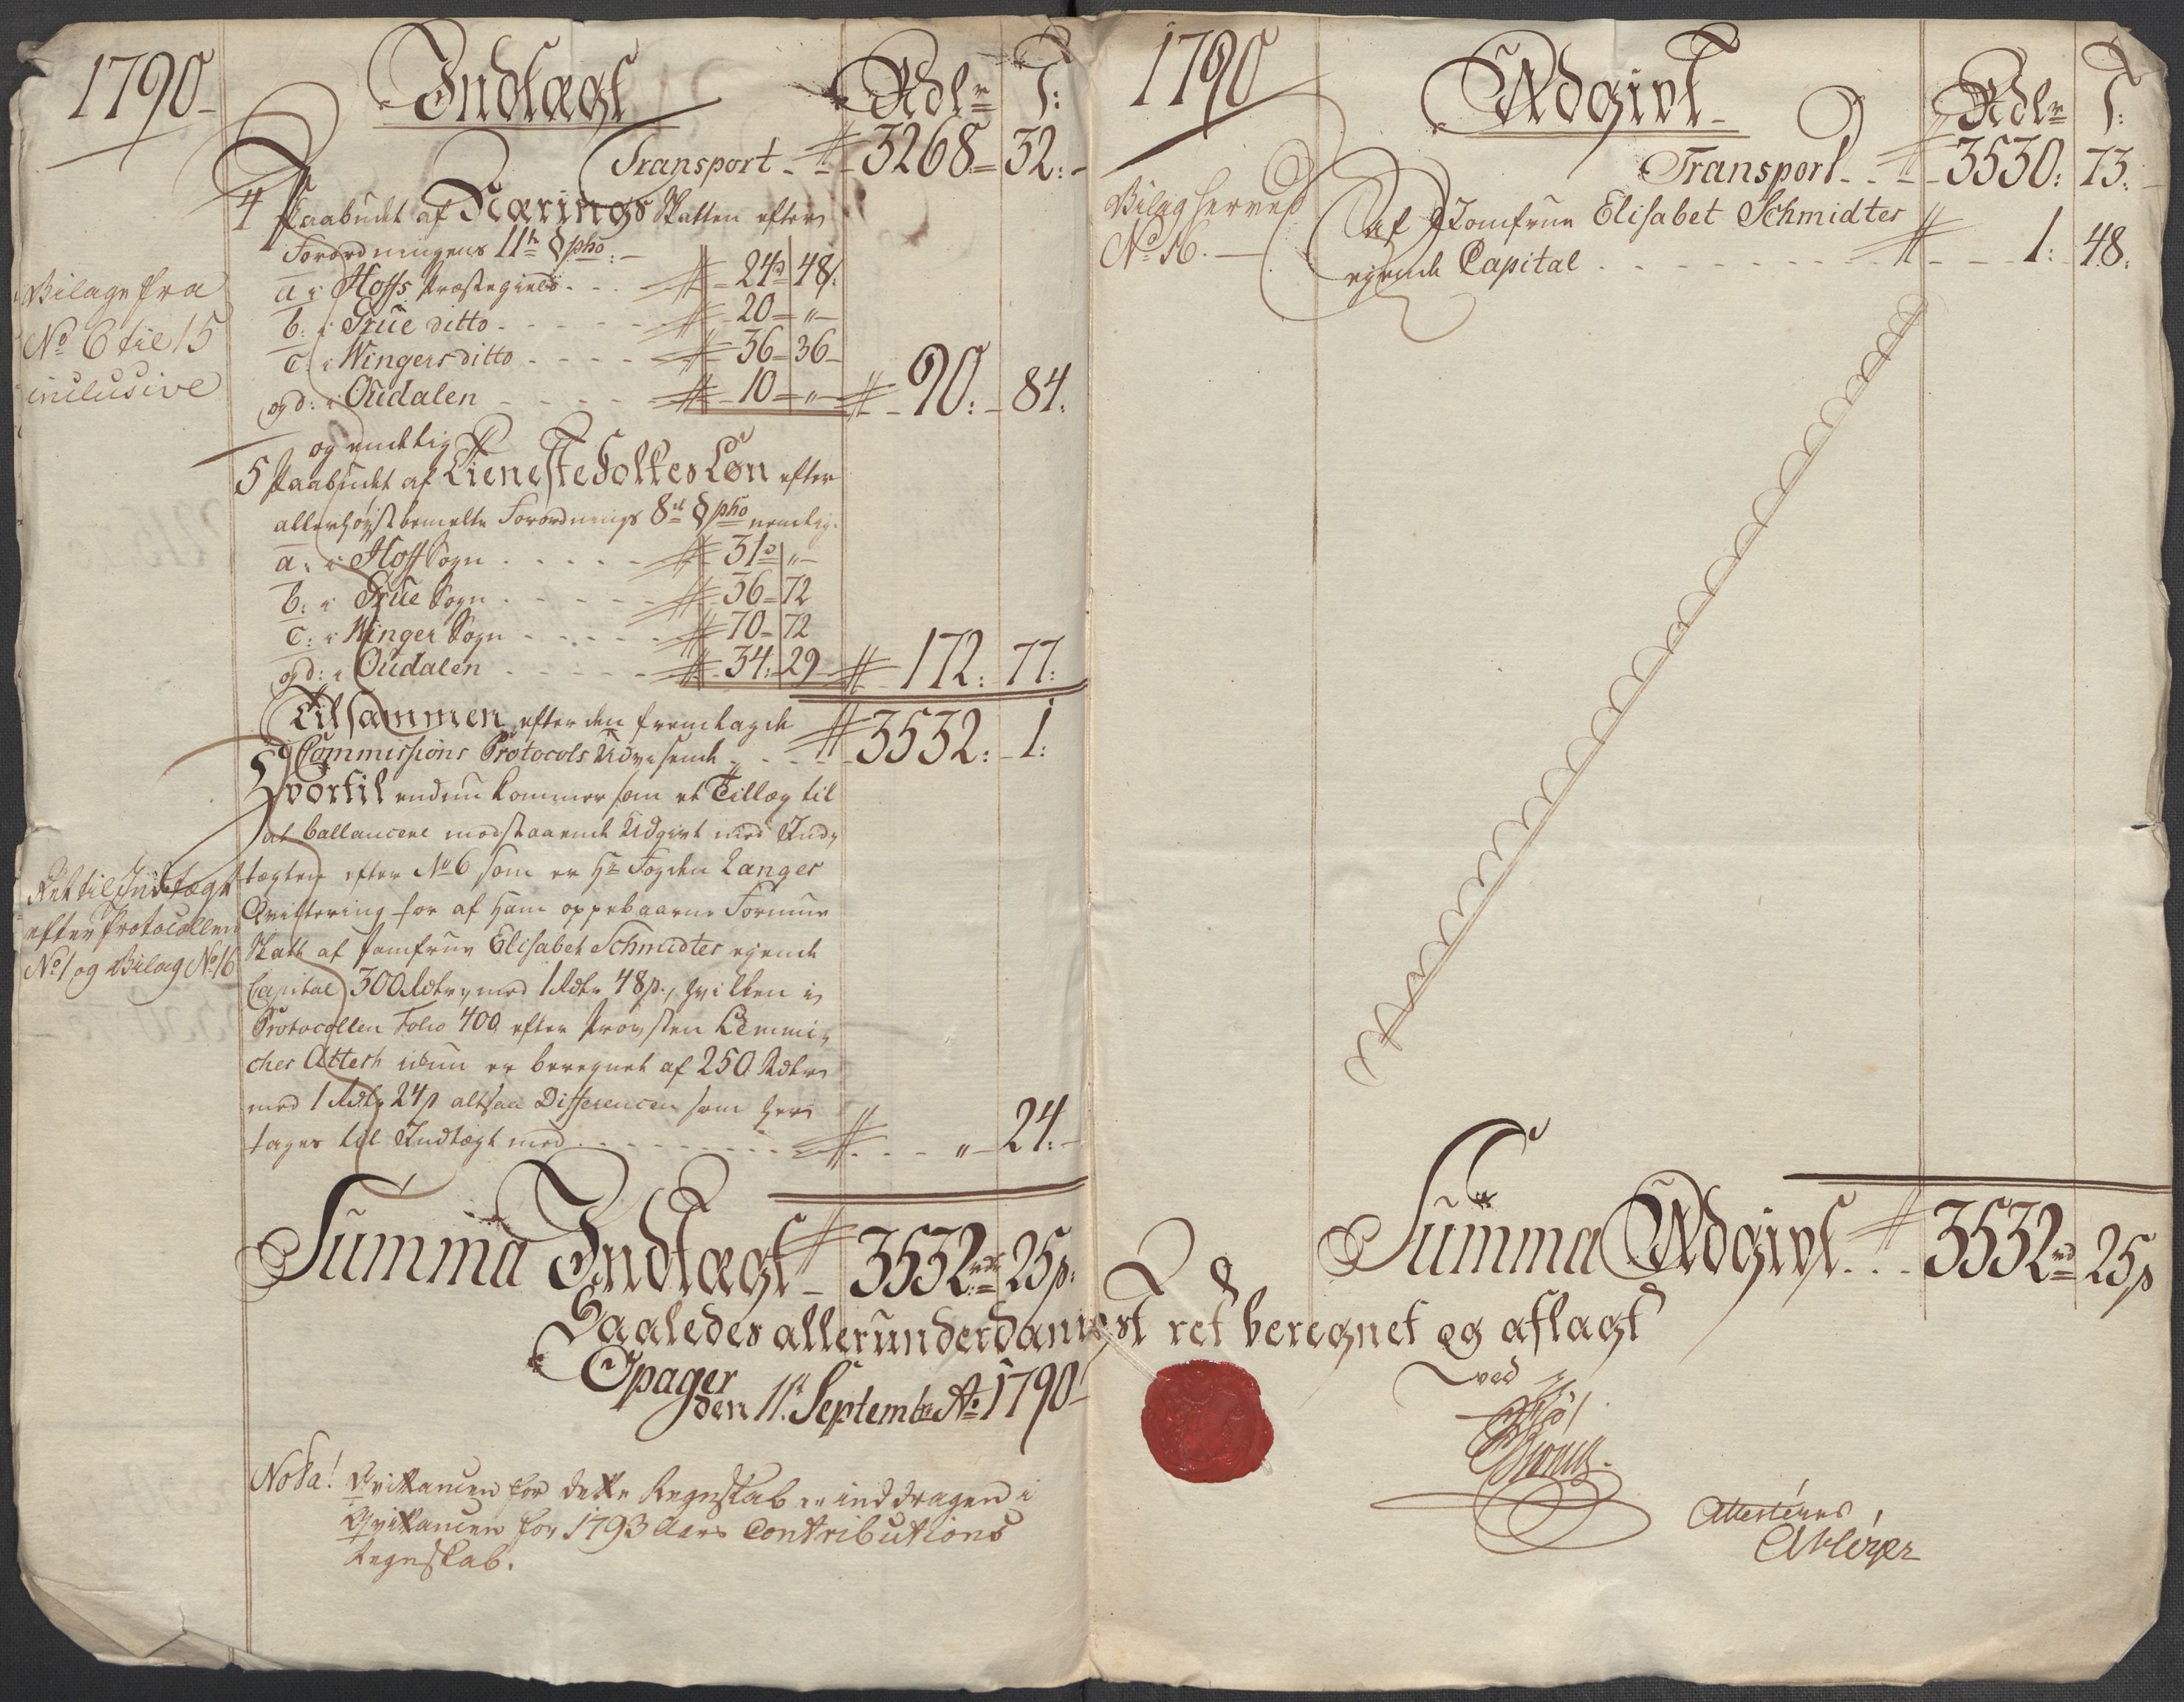 1790
Indtægt
Rdlr
S:
Transport - 3268 - 32: -
4 Paabudt af Nærings Skatten efter
Forordningens 11te § pho: -
a i Hoffs Præstegield - 24d 48s
b: i Grue ditto - 20 - " -
c: i Winger ditto - 36 - 36 -
og d: i Oudalen - 10 - " - 90: - 84:
Bilage fra
No 6 til 15
inclusive
og endelig
5 Paabudt af Tieneste Folkes Løn efter
allerhøystbemelte Forordnings 8de § pho nemlig:
a: i Hoff Sogn - 31d " -
b: i Grue Sogn - 36 - 72
c: i Winger Sogn - 70 - 72
og d: i Oudalen - 34: 29 - 172: 77:
Tilsammen efter den fremlagde
Commissions Protocols Udvisende - 3532: - 1:
Hvortil endnu kommer som et Tillæg til
at ballancere modstaaende Udgivt med Ind,
tægten efter No 6 som er Hr Fogden Langes
Qvittering for af ham oppebaarne Formue
Skatt af Jomfrue Elisabet Schmidtes eyende
Capital 300 Rdlr, med 1 Rdlr 48s., hvilken i
Protocollen Folio 400 efter Provsten Lemmi,
ches Attest ikun er beregnet af 250 Rdlr
med 1 Rdlr 24s altsaa Differencen som her
tages til Indtægt med - " - 24: -
Ret til Indtægt
efter Protocollen
No 1 og Bilag No 16
Summa Indtægt - 3532rd 25s:
1790
Udgivt
Rdlr
S:
Transport - 3530: 73:
Bilag herved
No 16. -
af Jomfrue Elisabet Schmidtes
eyende Capital - 1: 48:
Summa Udgivt - 3532rd 25s
Saaledes allerunderdanigst ret beregnet og aflagt
Opager
den 11t Septembr Ao 1790
ved
Nota! Qvittancen for dette Regnskab er inddragen i
Qvittancen for 1793 Aars Contributions
Regnskab.
Attesteres